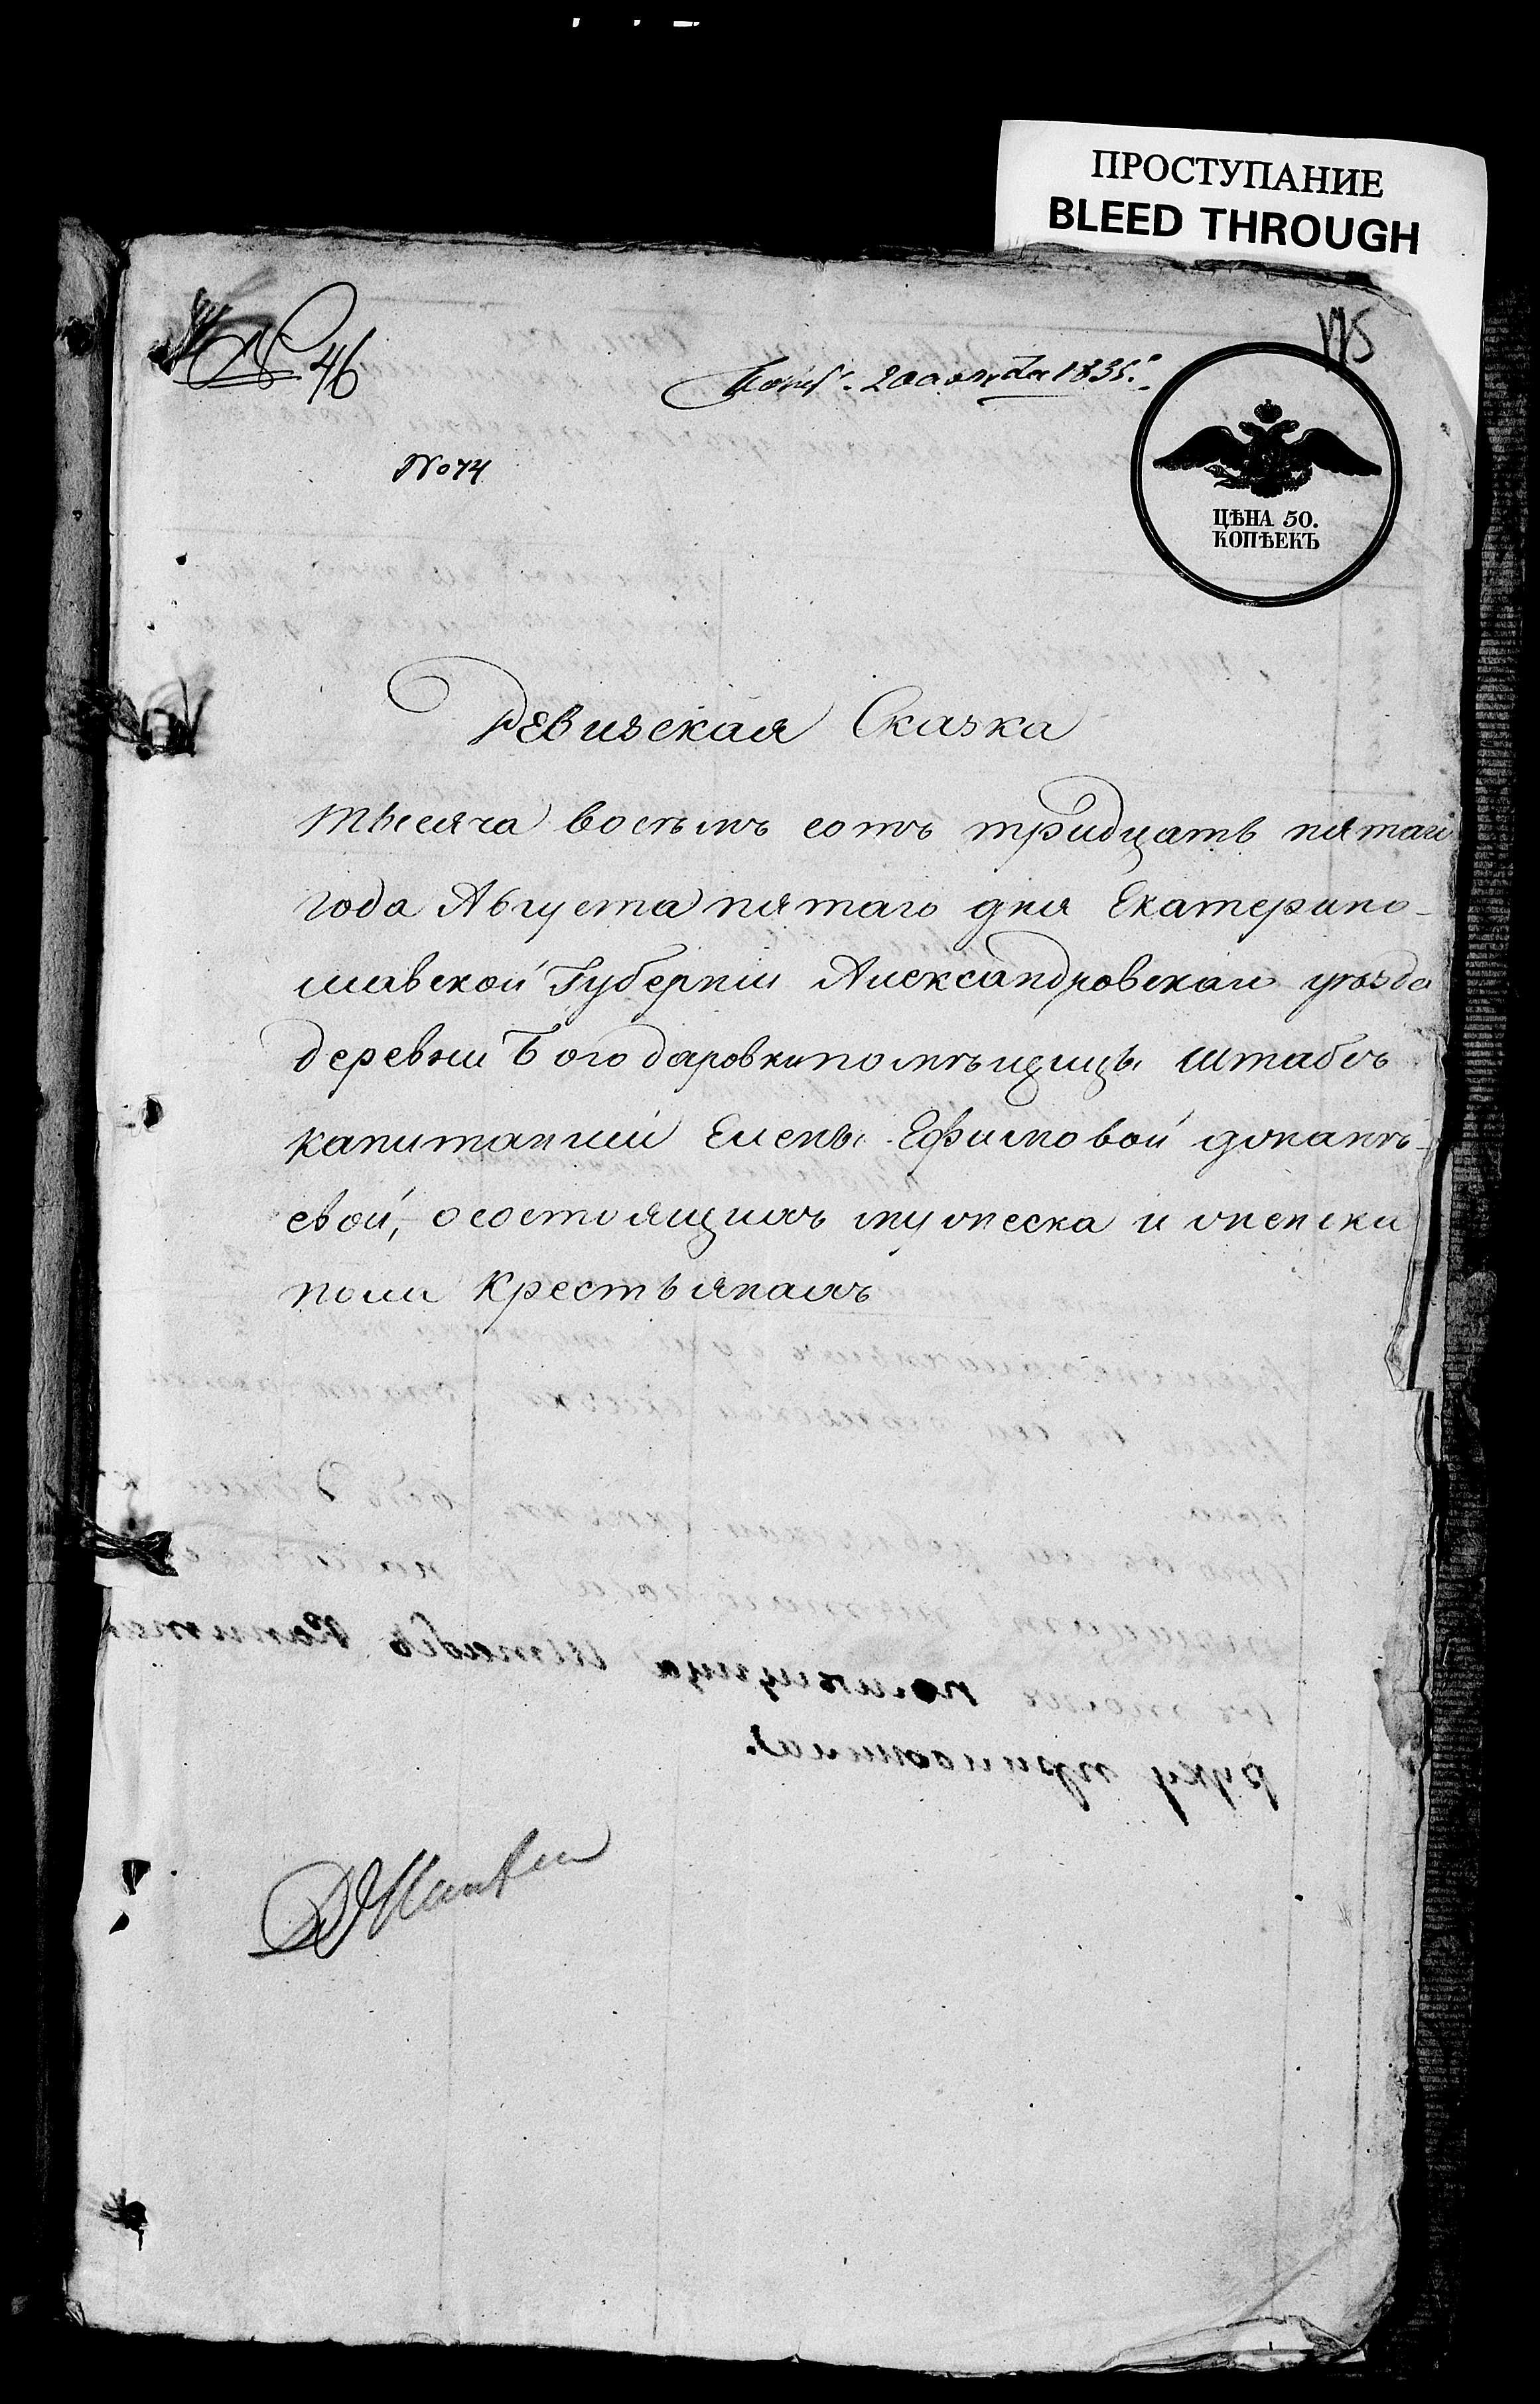 ПРОСТУПАНИЕ
BLEED THROUGH
175
№ 46
20 августа 1835.
No 74
ЦѢНА 50.
КОПѢЕКЪ
Ревизская Сказка
тысяча восемь сотъ тридцать пятаго
года Августа пятаго дня Екатерино-
славской Губерніи Александровскаго уѣзда
деревни Богодаровки помѣщицы Штабсъ
капитанши Елены Ефимовой
евой, о состоящихъ мужеска и женска
пола Крестьянахъ
помѣщица Штабсъ Капитан
руку приложила.